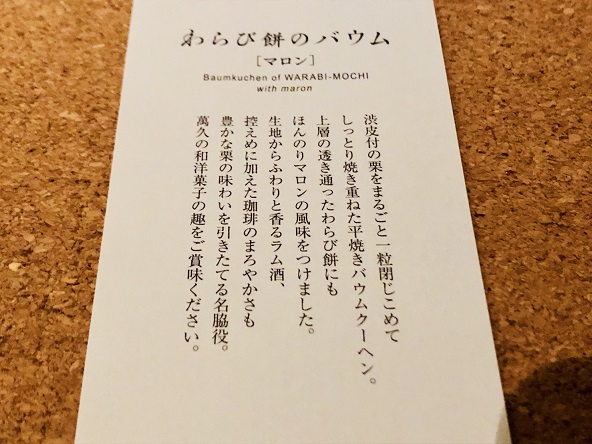 わらび餅のバウム
[マロン]
Baumkuchen of WARABI-MOCHI
with maron
渋皮付の栗をまるごと一粒閉じこめて
しっとり焼き重ねた平焼きバウムクーヘン。
上層の透き通ったわらび餅にも
ほんのりマロンの風味をつけました。
生地からふわりと香るラム酒、
控えめに加えた珈琲のまろやかさも
豊かな栗の味わいを引きたてる名脇役。
萬久の和洋菓子の趣をご賞味ください。